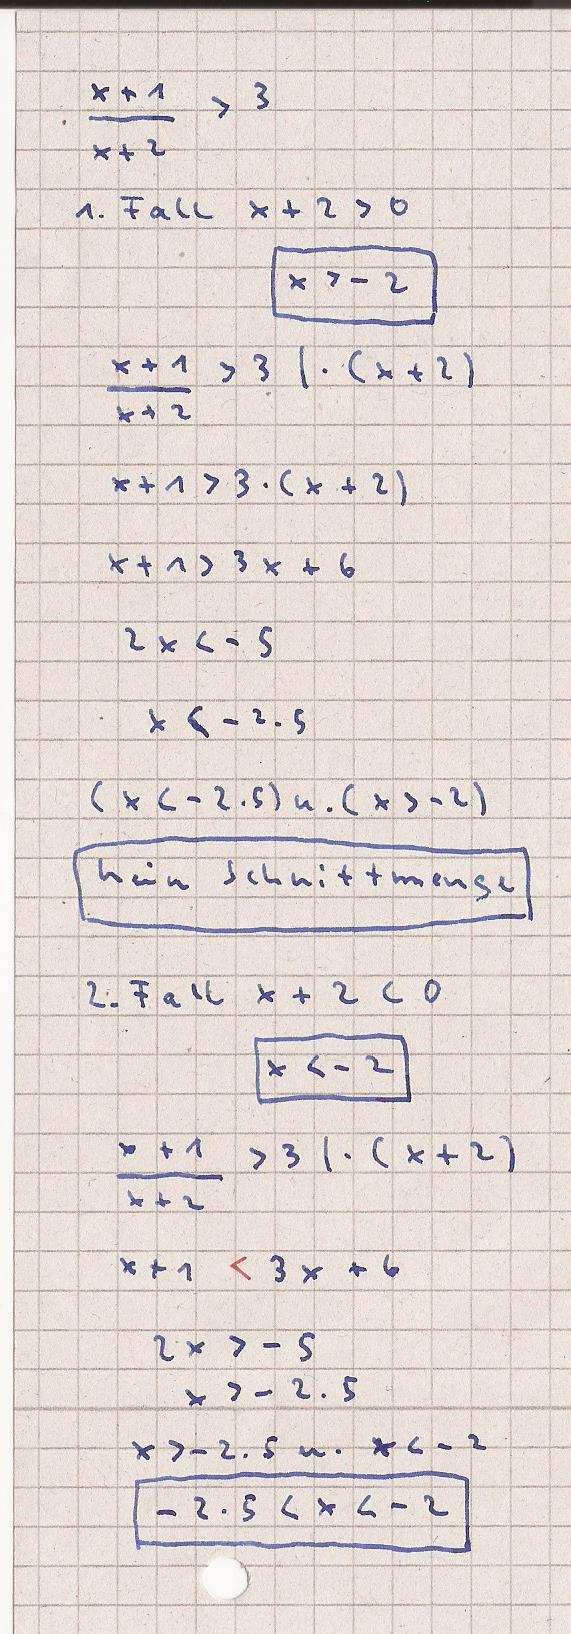 x+1
x+2 > 3
1. Fall x+2>0
x>-2
x+1
x+2 >3 |·(x+2)
x+1>3·(x+2)
x+1>3x+6
2x<-5
x<-2.5
(x<-2.5)u.(x>-2)
kein Schnittmenge
2. Fall x+2<0
x<-2
x+1
x+2 >3 |·(x+2)
x+1 < 3x+6
2x>-5
x>-2.5
x>-2.5 u. x<-2
-2.5<x<-2